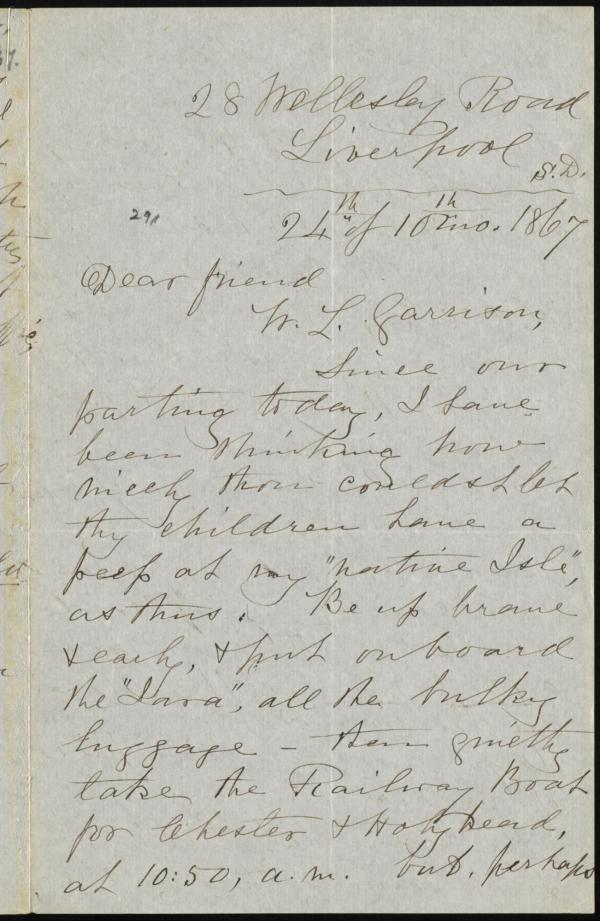 28 Wellesley Road
Liverpool
S.D.
24th of 10th mo. 1867
29
Dear friend
W. L. Garrison,
Since our
parting today, I have
been thinking how
nicely thou couldst let
thy children have a
peep at my "native Isle",
as thus. Be up brave
& early, & put on board
the "Java", all the bulky
luggage – then quietly
take the Railway Boat
for Chester & Holyhead,
at 10:50, a.m. but, perhaps